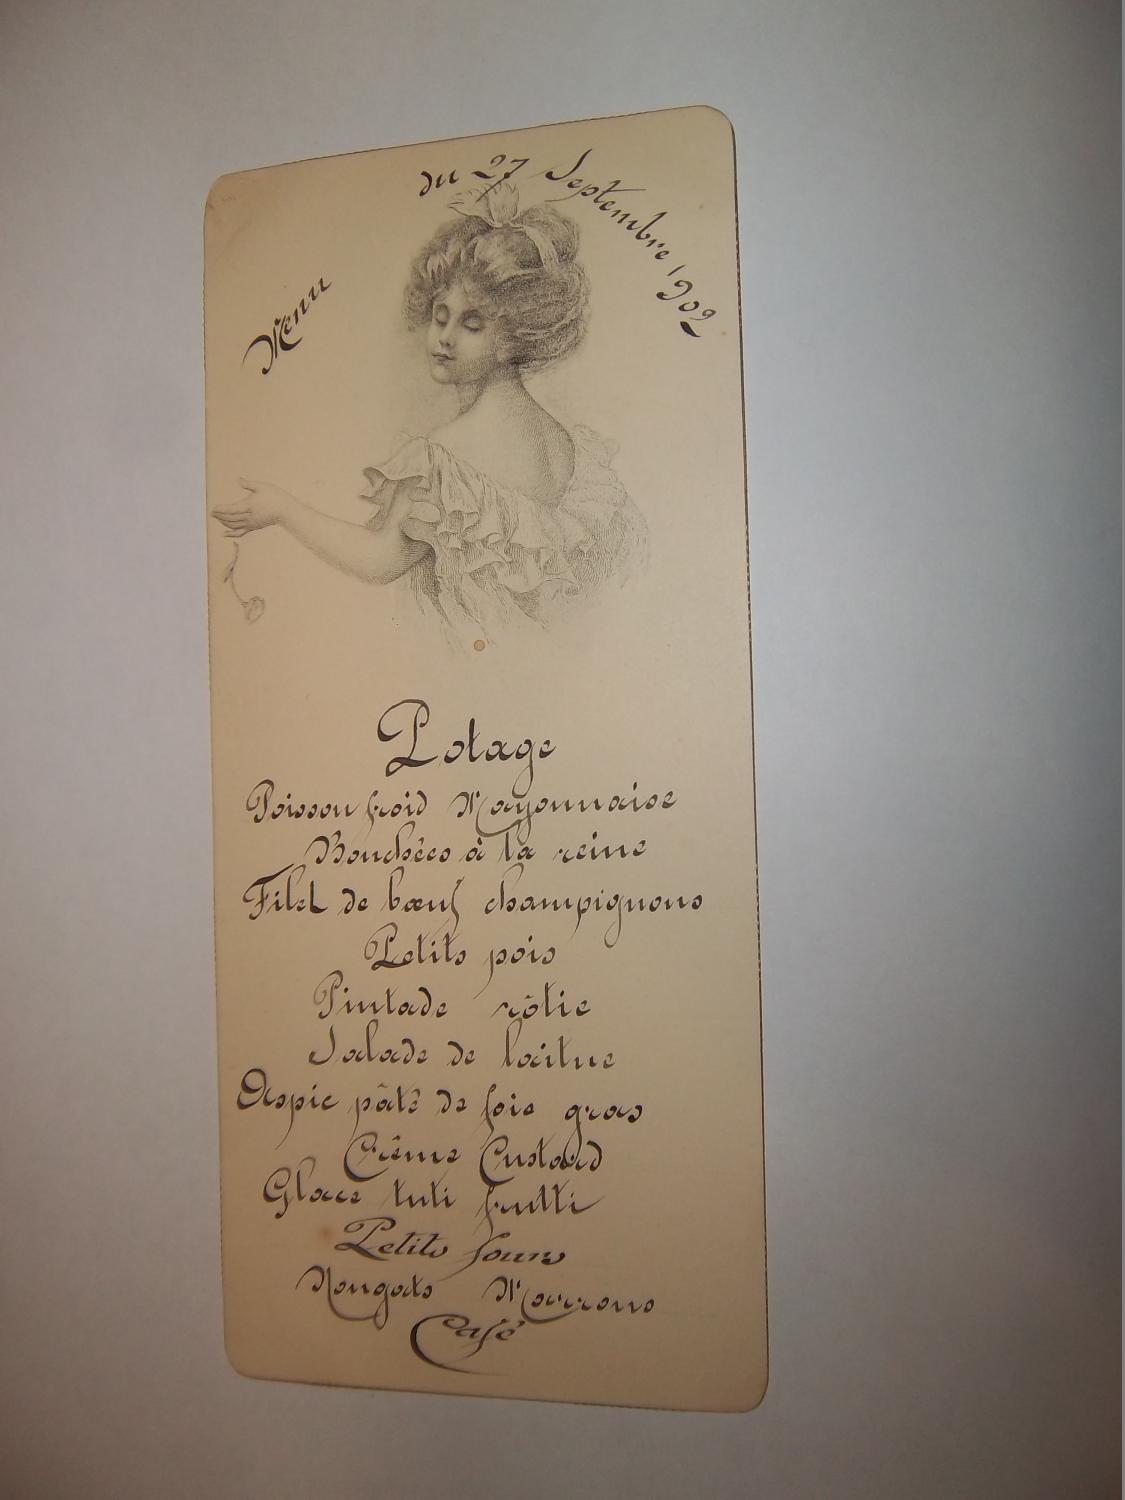 Menu
du 27 Septembre 1902
Potage
Poisson froid Mayonnaise
Bouchées à la reine
Filet de bœuf champignons
Petits pois
Pintade rôtie
Salade de laitue
Aspic pâté de foie gras
Crème Custard
Glace tuti frutti
Petits fours
Nougats Marrons
Café